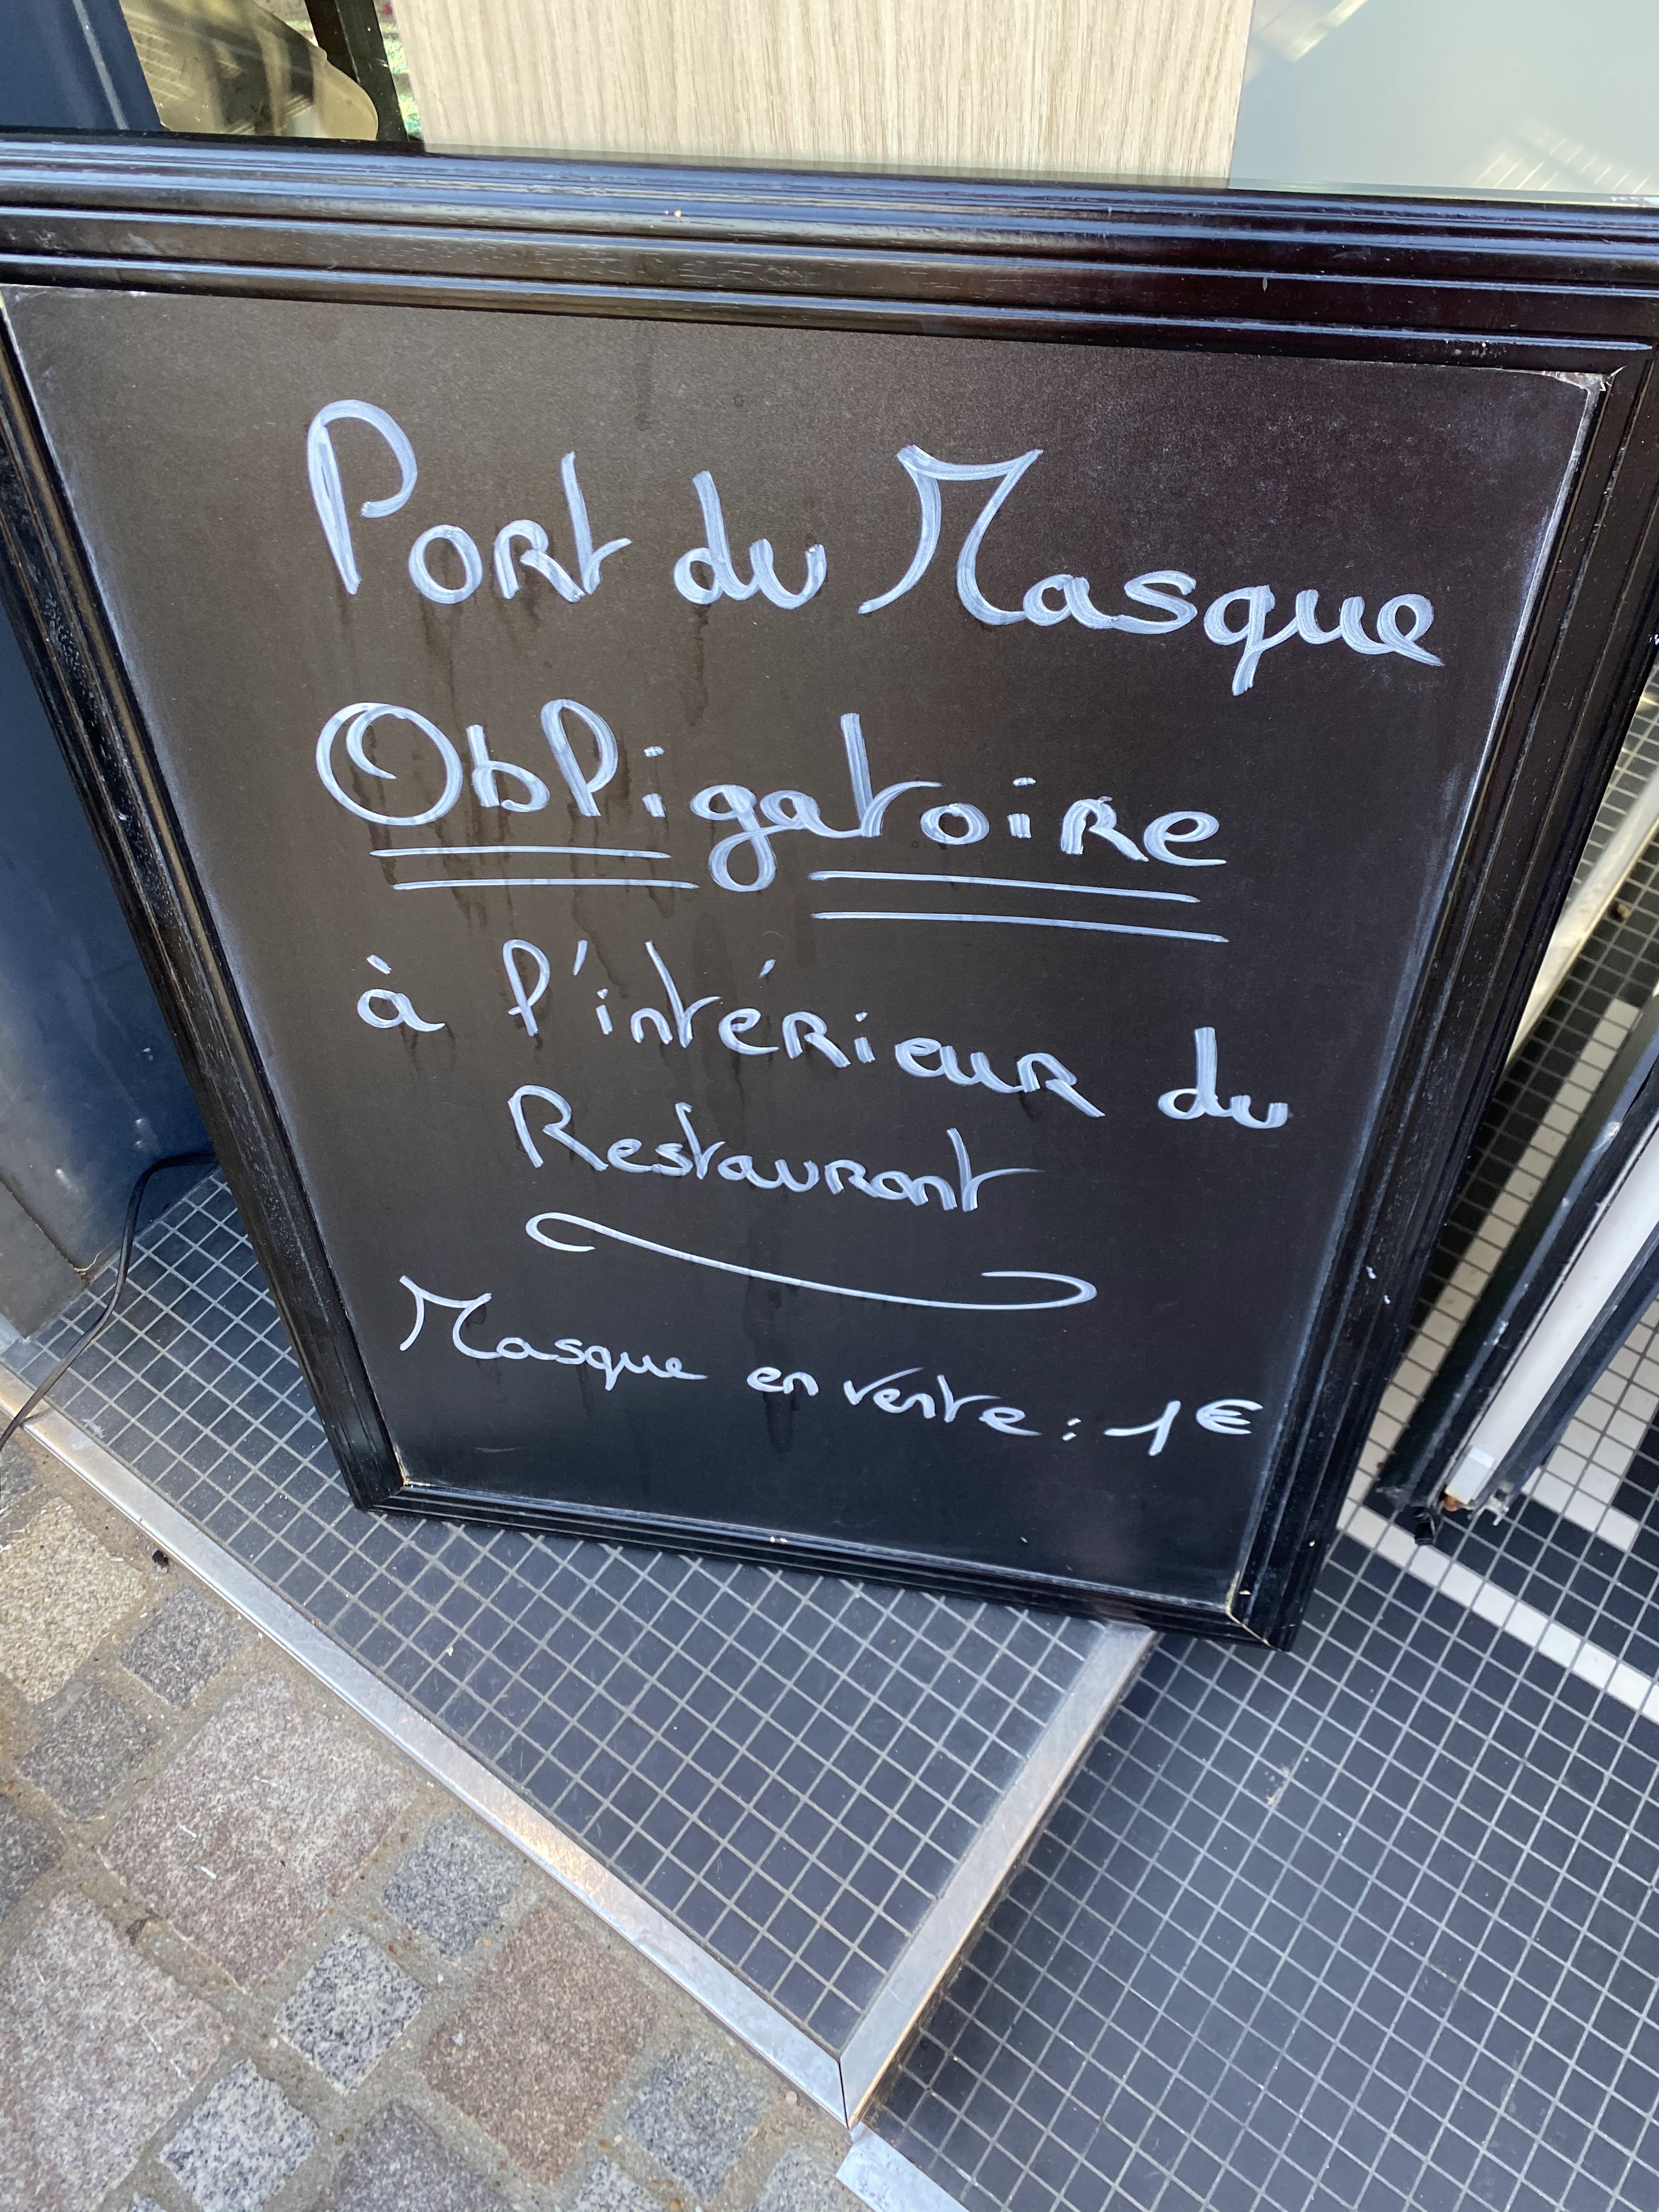 Port du Masque
Obligatoire
à l'intérieur du
Restaurant
Masque en vente : 1€